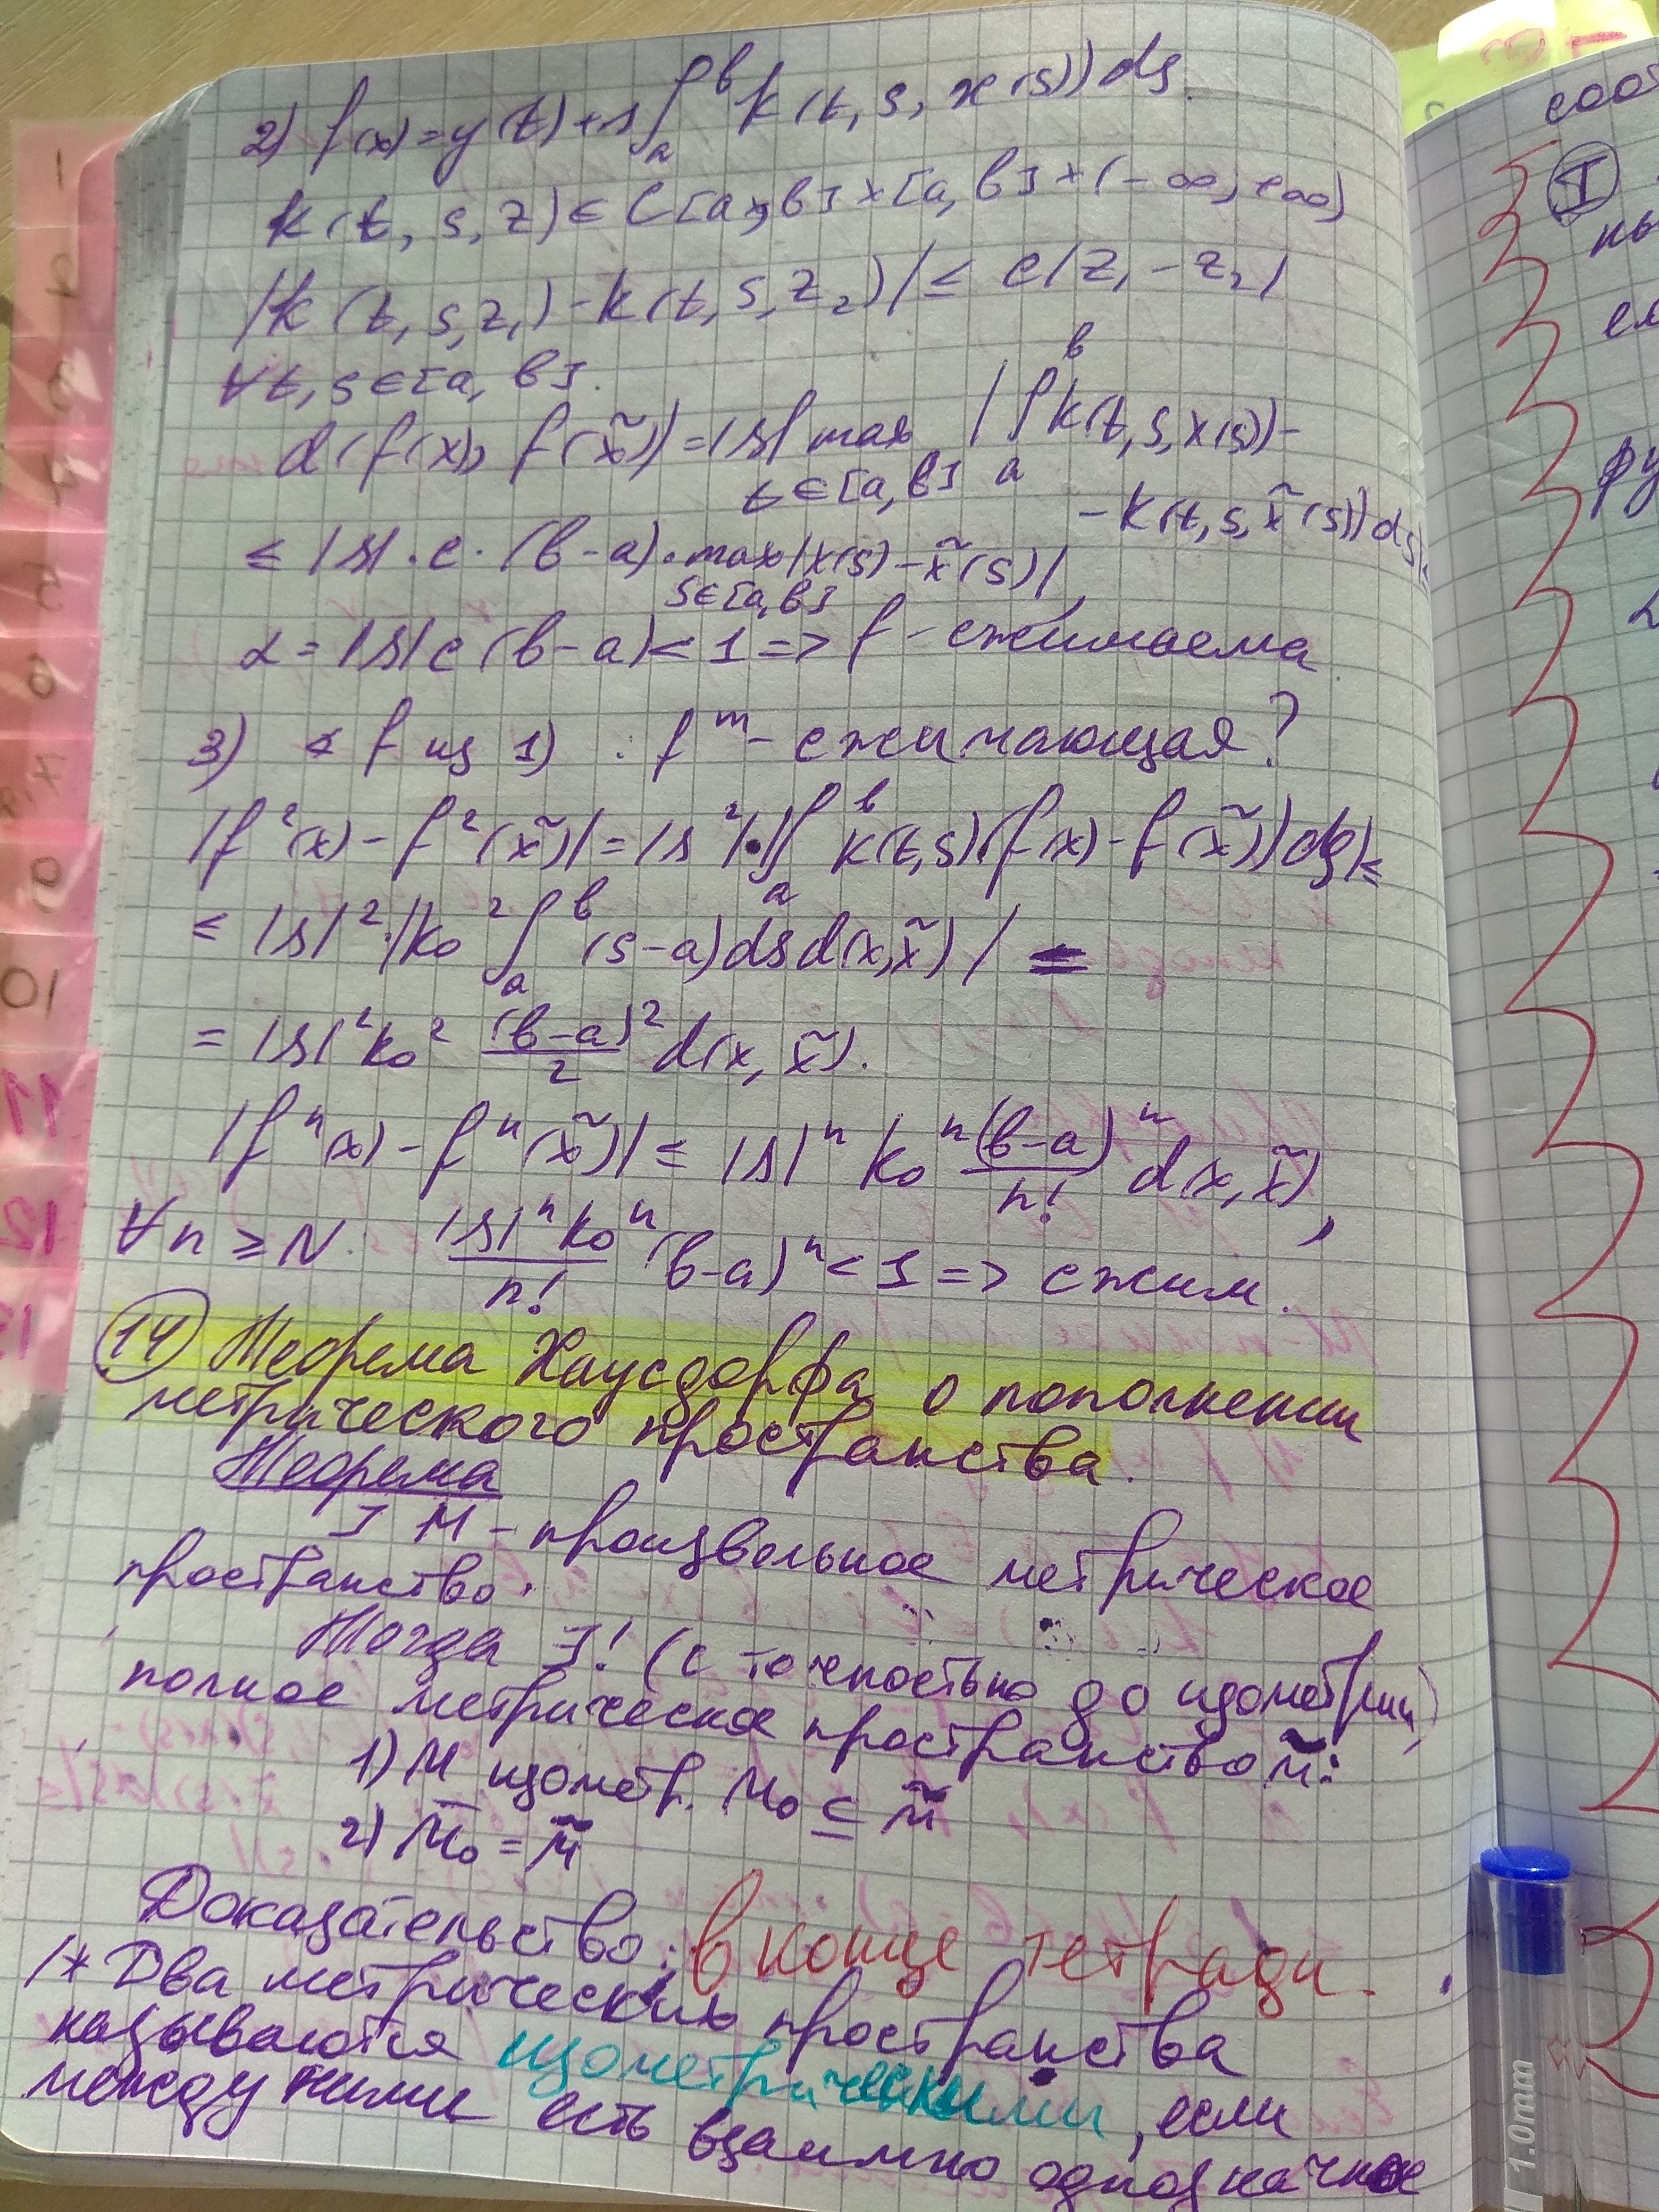 2) f(x)=y(t)+λ∫ₐᵇ k(t, s, x(s))ds.
k(t, s, z)∈C[a,b]×[a,b]×(-∞,+∞)
|k(t,s,z₁)-k(t,s,z₂)|≤ c|z₁-z₂|
∀t,s∈[a, b].
d(f(x), f(x̃))=|λ| max t∈[a,b] |∫ₐᵇ k(t,s,x(s))-
-k(t,s,x̃(s))ds|≤
≤ |λ|·c·(b-a)·max s∈[a,b] |x(s)-x̃(s)|,
α=|λ|c(b-a)<1=> f-сжимаема
3) f из 1). fᵐ-сжимающая?
|f²(x)-f²(x̃)|=|λ²|·|∫ₐᵇ k(t,s)(f(x)-f(x̃))ds|≤
≤ |λ|²·|k₀²∫ₐᵇ(s-a)ds d(x,x̃)| =
= |λ|²k₀² (b-a)²/2 d(x, x̃).
|fⁿ(x)-fⁿ(x̃)|≤ |λ|ⁿ k₀ⁿ (b-a)ⁿ/n! d(x, x̃),
∀n≥N |λ|ⁿk₀ⁿ/n! (b-a)ⁿ<1=> сжим.
14 Теорема Хаусдорфа о пополнении
метрического пространства.
Теорема
] M-произвольное метрическое
пространство.
Тогда ∃! (с точностью до изометрии)
полное метрическое пространство M̃:
1) M изометр. M₀ ⊆ M̃
2) M̄₀ = M̃
Доказательство: в конце тетради.
/* Два метрических пространства
называются изометрическими, если
между ними есть взаимно однозначное
1.0mm
10
11
12
I